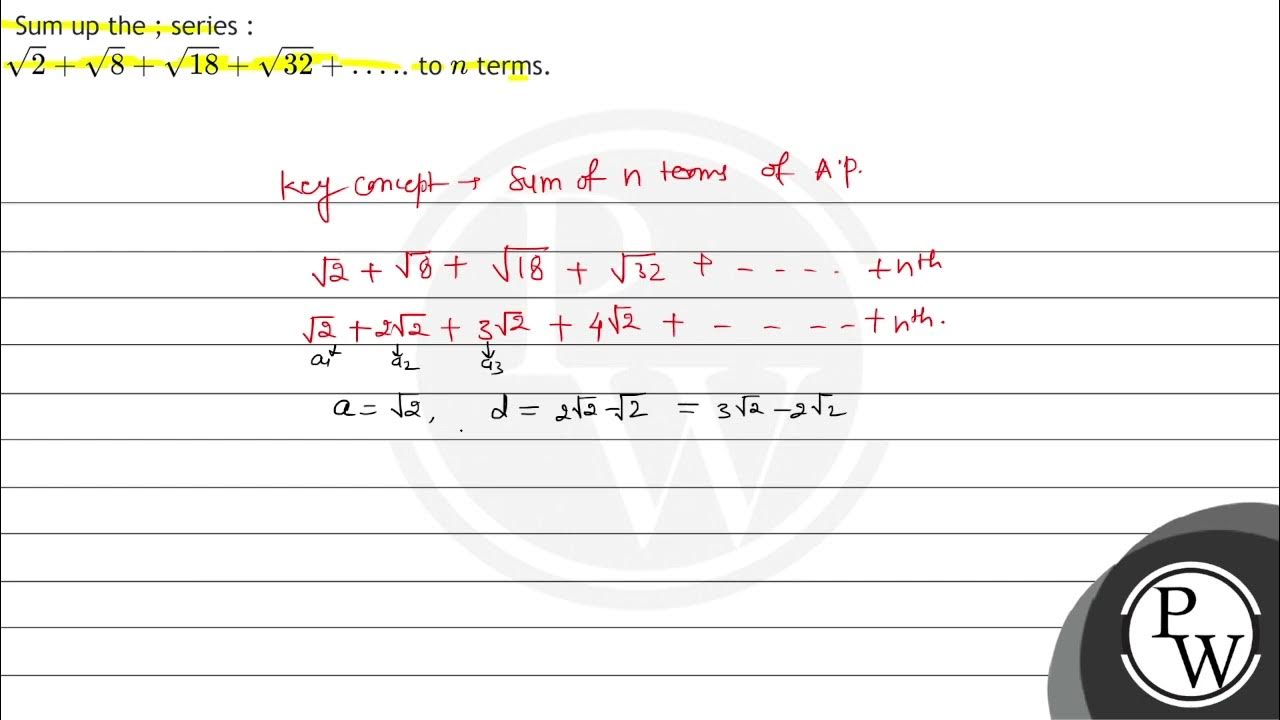 Sum up the ; series :
√2 + √8 + √18 + √32 + ..... to n terms.
Key concept → Sum of n terms of A.P.
√2 + √8 + √18 + √32 + - - - - . + nth
√2 + 2√2 + 3√2 + 4√2 + - - - - + nth.
a1 a2 a3
a = √2, d = 2√2 - √2 = 3√2 - 2√2
PW
PW